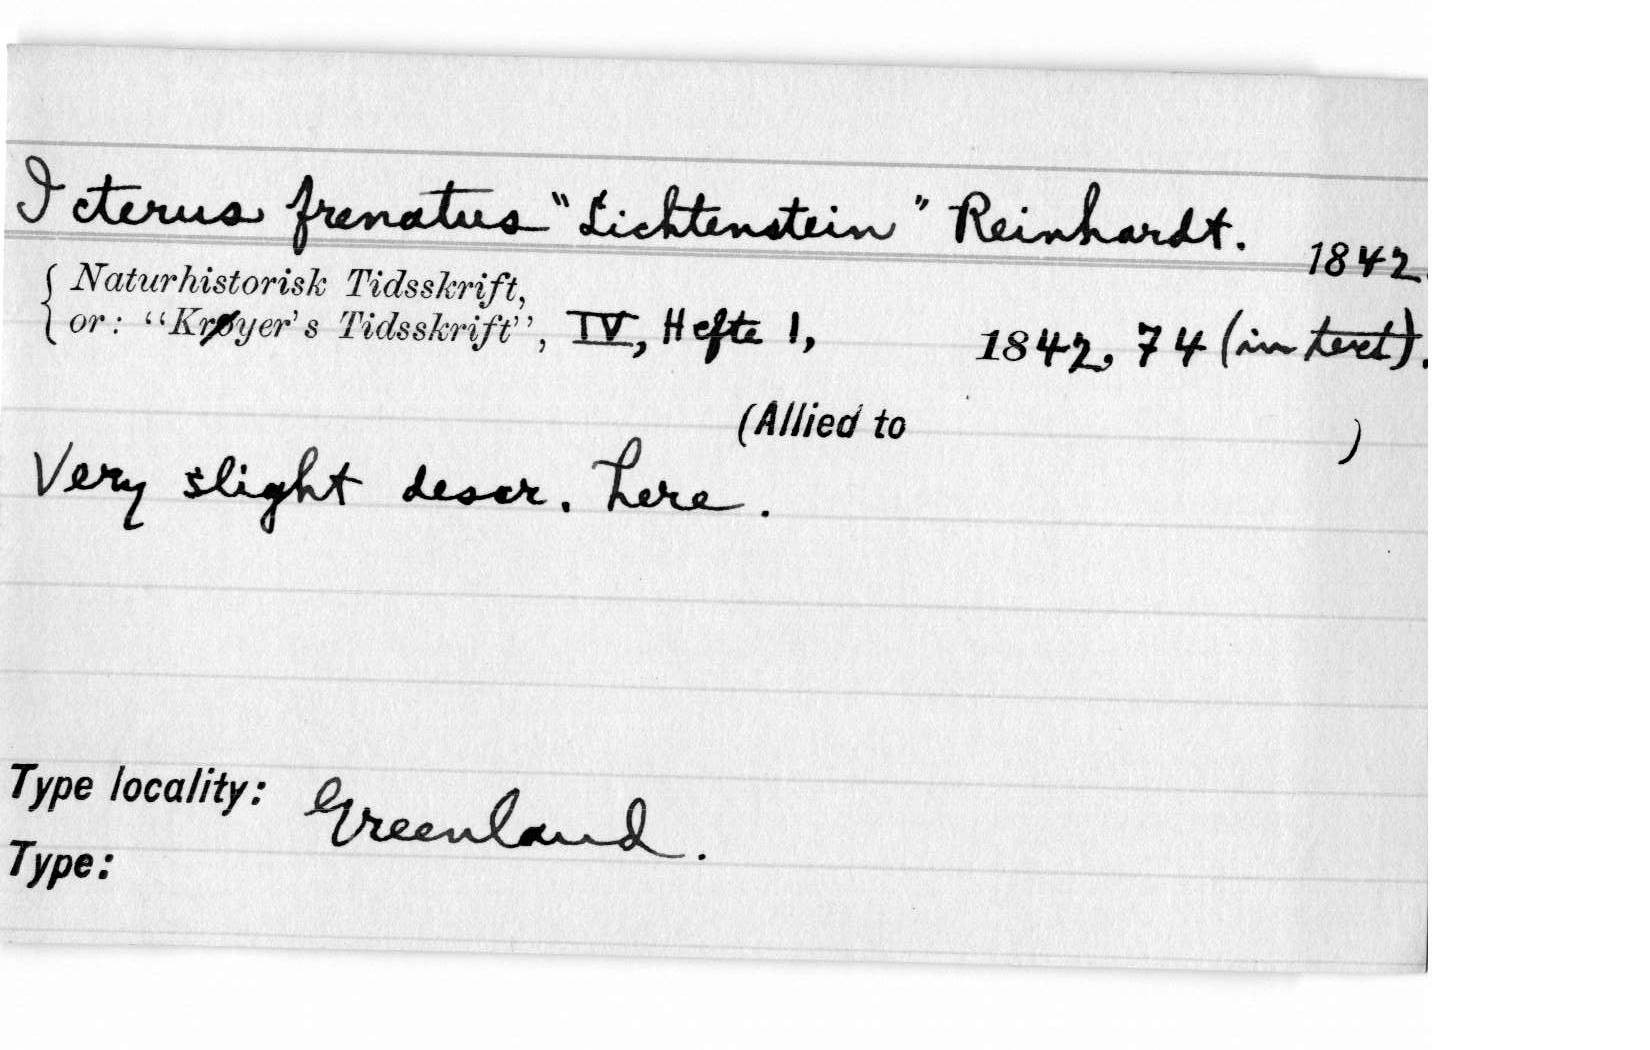 Icterus frenatus "Lichtenstein" Reinhardt. 1842.
Naturhistorisk Tidsskrift,
or: "Krøyer's Tidsskrift", IV, Hefte 1, 1842, 74 (in text).
(Allied to )
Very slight descr. here.
Type locality: Greenland.
Type: